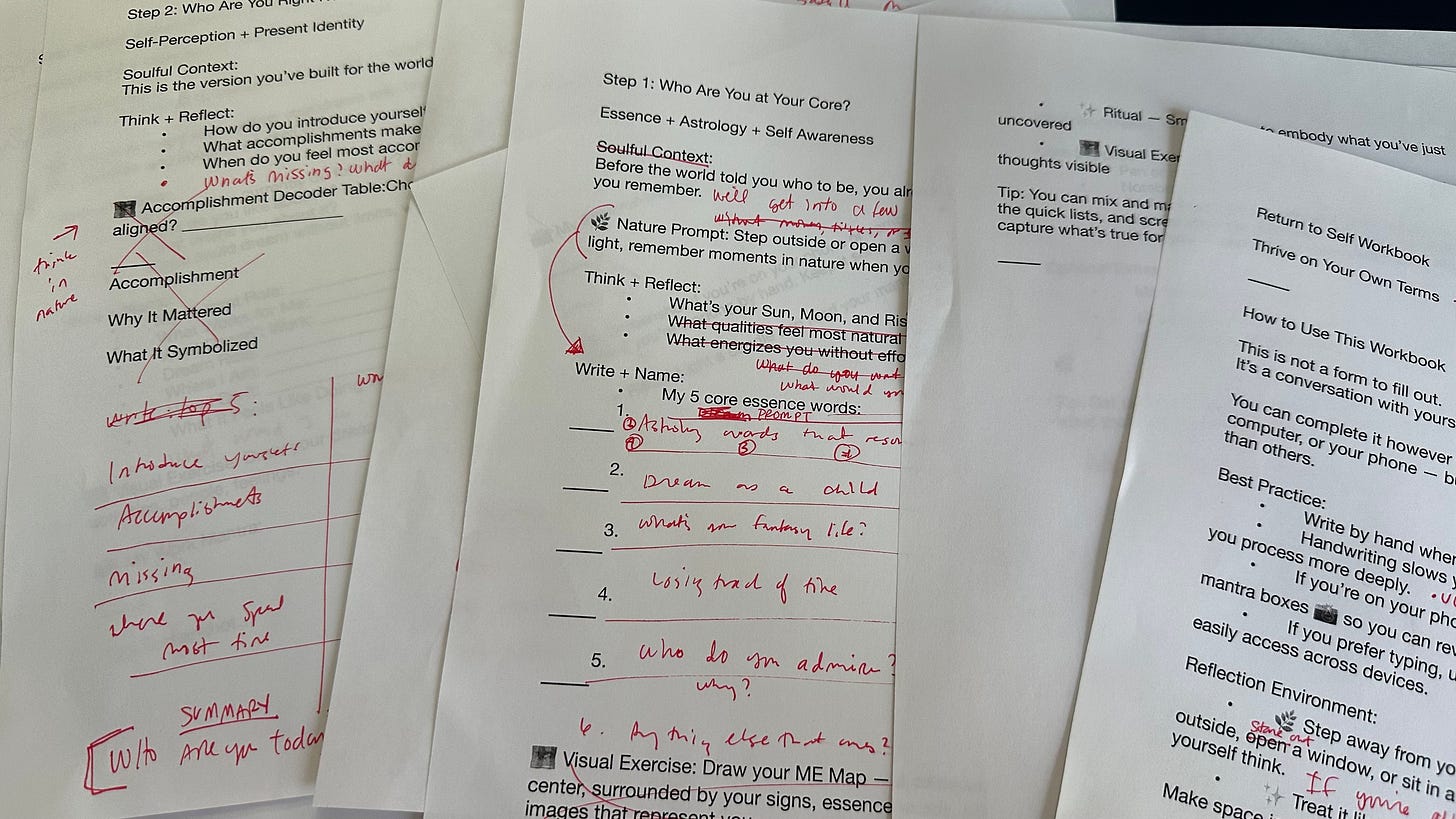 Step 2: Who Are You Right
Self-Perception + Present Identity
Soulful Context:
This is the version you've built for the world
Think + Reflect:
How do you introduce yourself
What accomplishments make
When do you feel most accor
What's missing? What
Accomplishment Decoder Table:
aligned?
think
in
nature
Accomplishment
Why It Mattered
What It Symbolized
write top 5:
Introduce yourself
Accomplishments
Missing
where you spend
most time
SUMMARY
Who Are you today
Step 1: Who Are You at Your Core?
Essence + Astrology + Self Awareness
Soulful Context:
Before the world told you who to be, you alr
you remember. We'll get into a few
without money, titles,
Nature Prompt: Step outside or open a w
light, remember moments in nature when yo
Think + Reflect:
What's your Sun, Moon, and Ris
What qualities feel most natural
What energizes you without effo
What do you want
what would
Write + Name:
My 5 core essence words:
PROMPT
1. Astrology words that reson
2. Dream as a child
3. what's your fantasy life?
4. Losing track of time
5. who do you admire?
why?
6. Anything else that comes?
Visual Exercise: Draw your ME Map —
center, surrounded by your signs, essence
images that represent you
Ritual — Sm
to embody what you've just
uncovered
Visual Exer
thoughts visible
Tip: You can mix and ma
the quick lists, and scre
capture what's true for
Return to Self Workbook
Thrive on Your Own Terms
How to Use This Workbook
This is not a form to fill out.
It's a conversation with yours
You can complete it however
computer, or your phone — b
than others.
Best Practice:
Write by hand when
Handwriting slows y
you process more deeply.
If you're on your pho
mantra boxes so you can rev
easily access across devices.
If you prefer typing, u
Reflection Environment:
Step away from yo
outside, open a window, or sit in a
yourself think. If you're
Treat it li
Make space